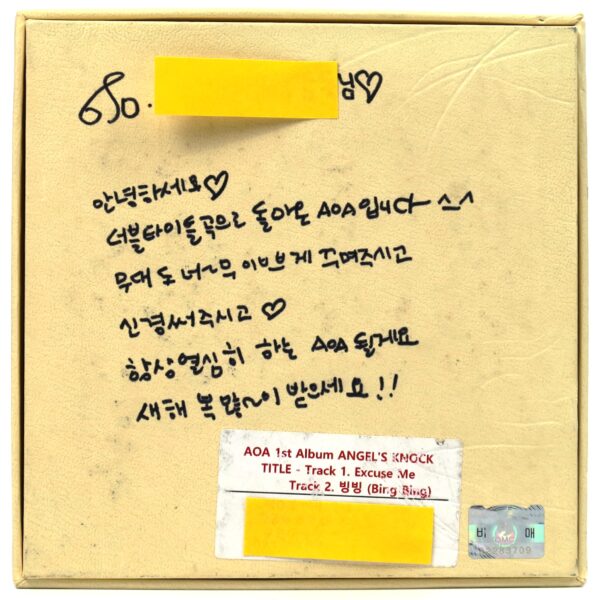 To. 님♡
안녕하세요♡
더블타이틀곡으로 돌아온 AOA입니다 ^_^
무대도 너~무 이쁘게 꾸며주시고
신경써주시고 ♡
항상열심히 하는 AOA 될게요
새해 복 많~이 받으세요!!
AOA 1st Album ANGEL'S KNOCK
TITLE - Track 1. Excuse Me
Track 2. 빙빙 (Bing Bing)
비 매